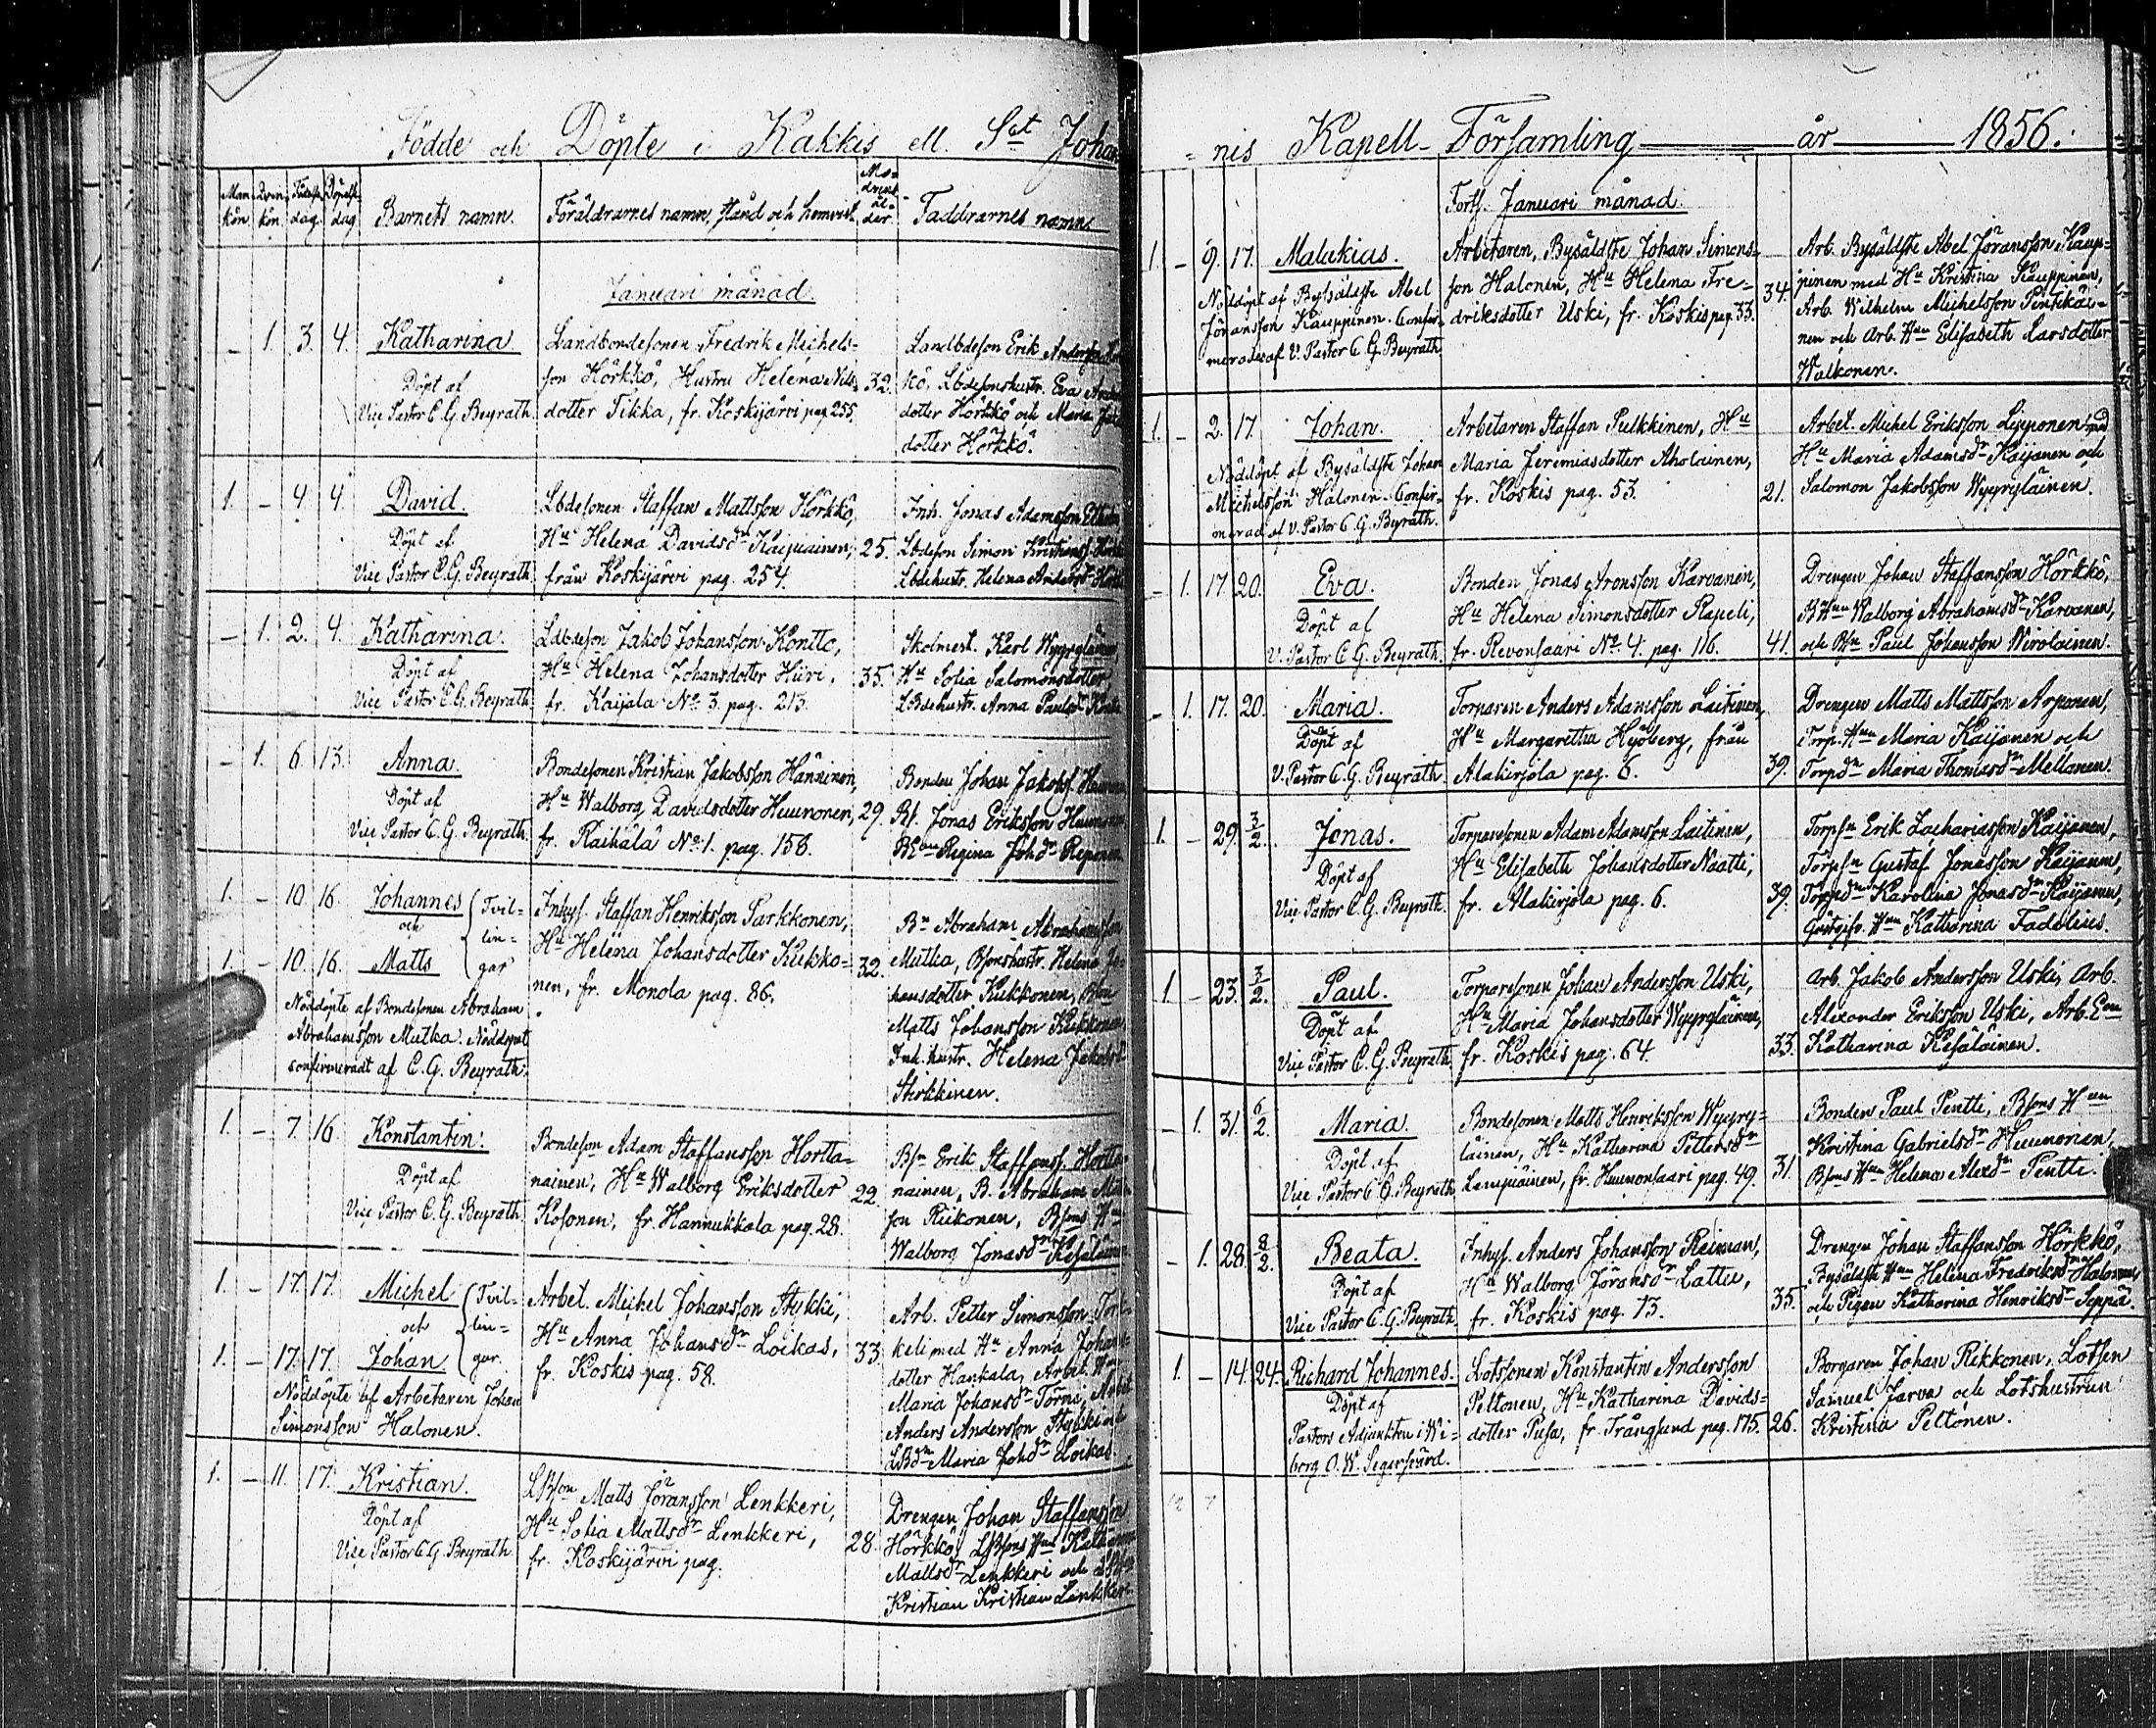 Födde och Döpte i Kakkis ell. Sct Johan
Man kön. Qvin kön. Födelse dag. Döpelse dag. Barnets namn. Föräldrarnes namn, stånd och hemvist. Modrens ålder. Faddrarnes namn.
Januari månad.
- 1. 3. 4. Katharina
Döpt af
Vice Pastor C. G. Beyrath.
Landbondesonen Fredrik Michels-
son Hörkkö, Hustru Helena Nils-
dotter Tikka, fr. Koskijärvi pag. 255.
32.
Landbdeson Erik Andersson
kö, Lbdesonshustr. Eva
dotter Hörkkö och Maria
dotter Hörkkö.
1. - 4. 4. David.
Döpt af
Vice Pastor C. G. Beyrath
Lbdesonen Staffan Mattsson Hörkkö,
Hu Helena Davidsdr Kaipiainen,
från Koskijärvi pag. 254.
25.
Inh. Jonas Adamsson
Lbdeson Simon
Lbdehustr. Helena
- 1. 2. 4. Katharina.
Döpt af
Vice Pastor C. G. Beyrath
Ldbdeson Jakob Johansson Kontto,
Hu Helena Johansdotter Hiiri,
fr. Kaijala No. 3. pag. 213.
35.
Skolmest. Karl Wyyryläinen,
Hu Sofia Salomonsdotter
LBdehustr. Anna
- 1. 6. 13. Anna.
Döpt af
Vice Pastor C. G. Beyrath.
Bondesonen Kristian Jakobsson Hänninen,
Hu Walborg Davidsdotter Huunonen,
fr. Raihala No. 1. pag. 158.
29.
Bonden Johan Jakobss.
Jonas Eriksson
Regina Johdr
1. - 10. 16. Johannes
och
1. - 10. 16. Matts
Tvil-
lin-
gar
Nöddöpte af Bondesonen Abraham
Abrahamsson Mutka. Nöddopet
confirmeradt af C. G. Beyrath.
Inhys. Staffan Henriksson Parkkonen,
Hu Helena Johansdotter Kukko-
nen, fr. Monola pag. 86.
32.
Bn Abraham Abrahamsson
Mutka, Bsonshustr. Helena Jo-
hansdotter Kukkonen,
Matts Johansson Kukkonen
Inh. hustr. Helena Jakobsd
1. - 7. 16. Konstantin.
Döpt af
Vice Pastor C. G. Beyrath.
Bondeson Adam Staffansson Hortta-
nainen, Hu Walborg Eriksdotter
Kosonen, fr. Hannukkala pag. 28.
22.
Bsn Erik Staffanss. Hortta-
nainen, B. Abraham
son Riikonen,
Walborg Jonasdr
1. - 17. 17. Michel
och
1. - 17. 17. Johan
Tvil-
lin-
gar.
Nöddöpte af Arbetaren Johan
Simonsson Halonen.
Arbet. Michel Johansson Stykki,
Hu Anna Johansdr Loikas,
fr. Koskis pag. 58.
33.
Arb. Petter Simonsson
keli med Hu Anna Johans-
dotter Hankala,
Maria Johansdr Törnä,
Anders Andersson Stykki och
Maria Johdr Loikas
1. - 11. 17. Kristian.
Döpt af
Vice Pastor C. G. Beyrath
LBson Matts Jöransson Lenkkeri,
Hu Sofia Mattsdr Lenkkeri,
fr. Koskijärvi pag.
28.
Drengen Johan Staffansson
Hörkkö, LBsons Hu
Mattsdr Lenkkeri och
Kristian Kristian Lenkkeri
nis Kapell-Församling år 1856.
Forts. Januari månad.
1. - 9. 17. Malakias.
Nöddöpt af Bysåldste Abel
Jöransson Kauppinen. Confir-
merades af V. Pastor C. G. Beyrath
Arbetaren, Bysåldste Johan Simons-
son Halonen, Hu Helena Fre-
driksdotter Uski, fr. Koskis pag. 33.
34.
Arb. Bysåldste Abel Jöransson Kaup-
pinen med Hu Kristina Kauppinen,
Arb. Wilhelm Michelsson Pentikäi-
nen och Arb. Hun Elisabeth Larsdotter
Walkonen.
1. - 2. 17. Johan.
Nöddöpt af Bysåldste Johan
Michelsson Halonen. Confir-
merad af V. Pastor C. G. Beyrath.
Arbetaren Staffan Pulkkinen, Hu
Maria Jeremiasdotter Aholainen,
fr. Koskis pag. 53.
21.
Arbet. Michel Eriksson Lipponen med
Hu Maria Adamsdr Kaijanen och
Salomon Jakobsson Wyyryläinen.
- 1. 17. 20. Eva.
Döpt af
V. Pastor C. G. Beyrath.
Bonden Jonas Aronsson Karvanen,
Hu Helena Simonsdotter Rapeli,
fr. Revonsaari No. 4. pag. 116.
41.
Drengen Johan Staffansson Hörkkö,
BHun Walborg Abrahamsdr Karvanen,
och Bsn Paul Johansson Wirolainen.
- 1. 17. 20. Maria.
Döpt af
V. Pastor C. G. Beyrath.
Torparen Anders Adamsson Laitinen,
Hu Margaretha Hyöberg, från
Alakirjola pag. 6.
39.
Drengen Matts Mattsson Arponen,
Torp. Hun Maria Kaijanen och
Torpdr Maria Thomasdr Mellanen.
1. - 29. 3/2. Jonas.
Döpt af
Vice Pastor C. G. Beyrath.
Torparesonen Adam Adamsson Laitinen,
Hu Elisabeth Johansdotter Naatti,
fr. Alakirjola pag. 6.
39.
Torpsn Erik Zachariasson Kaijanen,
Torpsn Gustaf Jonasson Kaijanen,
Torpdr Karolina Jonasdr Kaijanen,
Hun Katharina Fadelius.
1. - 23. 3/2. Paul.
Döpt af
Vice Pastor C. G. Beyrath
Torparesonen Johan Andersson Uski,
Hu Maria Johansdotter Wyyryläinen,
fr. Koskis pag. 64.
33.
Arb. Jakob Andersson Uski, Arb.
Alexander Eriksson Uski, Arb. Enn
Katharina Kesäläinen.
- 1. 31. 6/2. Maria.
Döpt af
Vice Pastor C. G. Beyrath
Bondesonen Matts Henriksson Wyyry-
läinen, Hu Katharina Pettersdr
Lempiäinen, fr. Huunonsaari pag. 49.
31.
Bonden Paul Pentti, Bsons Hun
Kristina Gabrielsdr Huunonen,
Bsons Hun Helena Alexdr Pentti.
- 1. 28. 8/2. Beata.
Döpt af
Vice Pastor C. G. Beyrath
Inhys. Anders Johansson Reiman,
Hu Walborg Jöransdr Lattu,
fr. Koskis pag. 73.
35.
Drengen Johan Staffansson Hörkkö,
Bysåldste Hun Helena Fredriksdr Halonen,
och Pigan Katharina Henriksdr Seppä.
1. - 14. 24. Richard Johannes.
Döpt af
Pastors Adjunkten i Wi-
borg O. W. Segersvärd.
Lotssonen Konstantin Andersson
Peltonen, Hu Katharina Davids-
dotter Pusa, fr. Trångsund pag. 175.
26.
Borgaren Johan Rikkonen, Lotsen
Samuel Jarva och Lotshustrun
Kristina Peltonen.